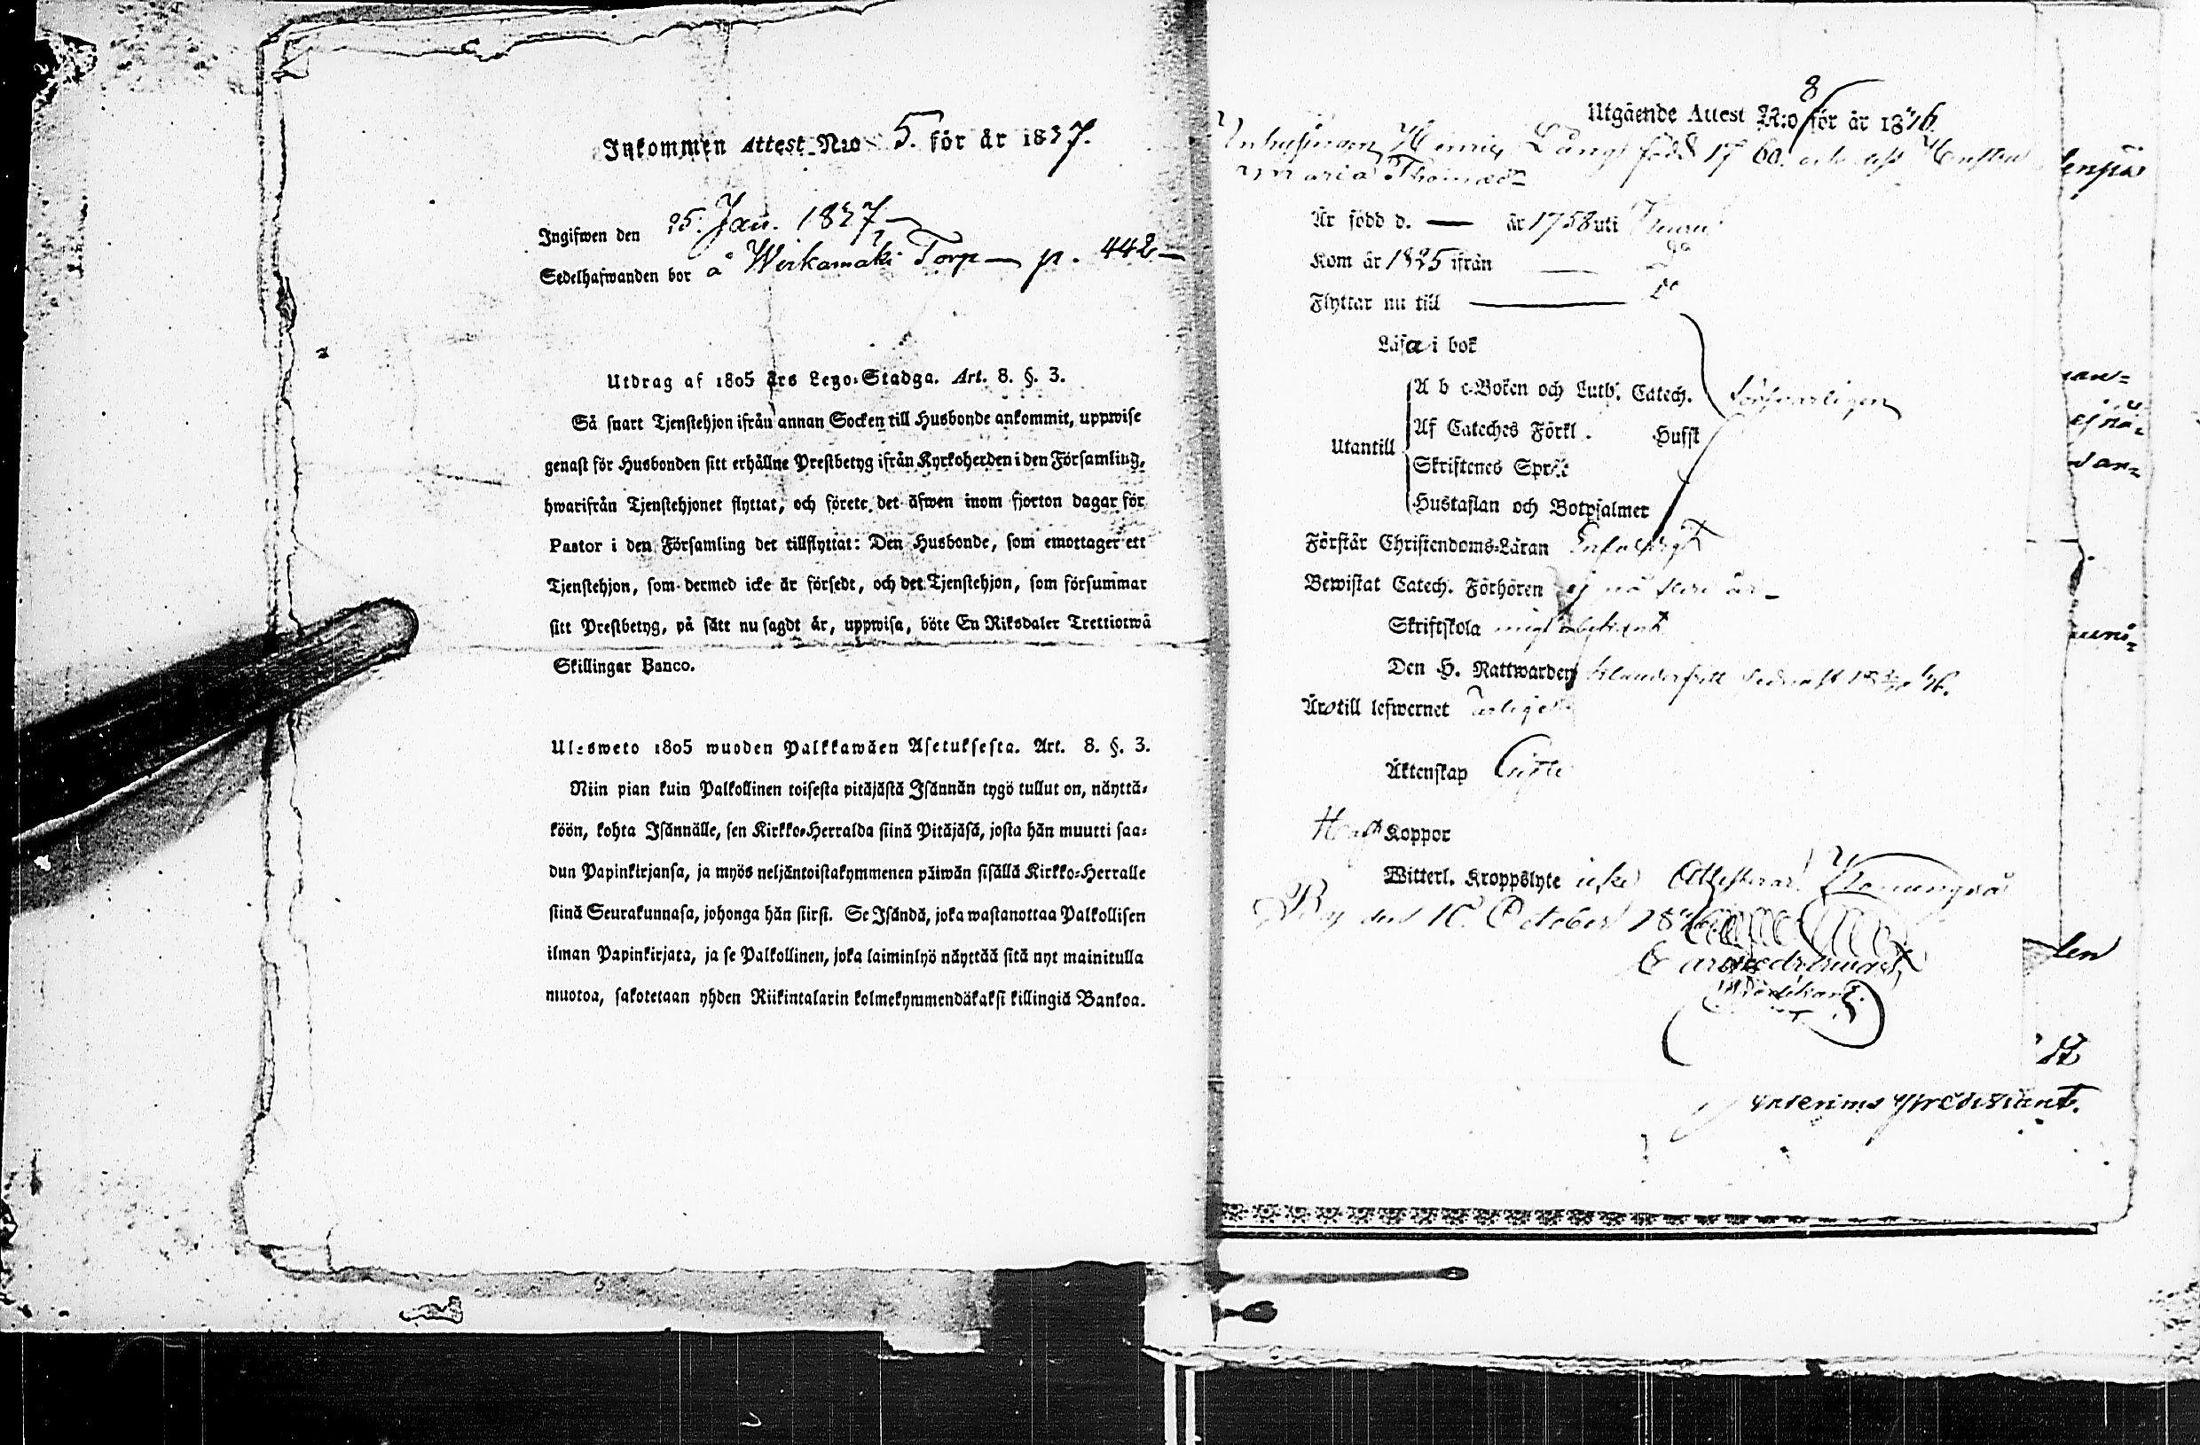 Inkommen Attest N:o 5. för år 1837.
Ingifwen den 25. Jan. 1837
Sedelhafwanden bor å Wirkamäki Torp p. 442
Utdrag af 1805 års Lego-Stadga. Art. 8. §. 3.
Så snart Tjenstehjon ifrån annan Socken till Husbonde ankommit, uppwise
genast för Husbonden sitt erhållne Prestbetyg ifrån Kyrkoherden i den Församling,
hwarifrån Tjenstehjonet flyttat, och förete det äfwen inom fjorton dagar för
Pastor i den Församling det tillflyttat: Den Husbonde, som emottager ett
Tjenstehjon, som dermed icke är försedt, och det Tjenstehjon, som försummar
sitt Prestbetyg, på sätt nu sagdt är, uppwisa, böte En Riksdaler Trettiotwå
Skillingar Banco.
Ulosweto 1805 wuoden Palkkawäen Asetuksesta. Art. 8. §. 3.
Niin pian kuin Palkollinen toisesta pitäjästä Isännän tygö tullut on, näyttä-
köön, kohta Isännälle, sen Kirkko-Herralda siinä Pitäjäsä, josta hän muutti saa-
dun Papinkirjansa, ja myös neljäntoistakymmenen päiwän sisällä Kirkko-Herralle
siinä Seurakunnasa, johonga hän siirsi. Se Isändä, joka wastanottaa Palkollisen
ilman Papinkirjata, ja se Palkollinen, joka laiminlyö näyttää sitä nyt mainitulla
muotoa, sakotetaan yhden Riikintalarin kolmekymmendäkaksi killingiä Bankoa.
Utgående Attest N:o 8 för år 1836
Inhysingen Henric Lång född 1760. och dess Hustru
Maria Thomasdr
Är född d. — år 1758 uti
Kom år 1825 ifrån
Flyttar nu till
Läsa i bok
A b c-Boken och Luth. Catech. försvarligen
Utantill Af Cateches Förkl. Hufst
Skriftenes Språk
Hustaflan och Botpsalmer
Förstår Christendoms-Läran Enfaldigt
Bewistat Catech. Förhören ej på flere år
Skriftskola mig obekant
Den H. Nattwarden klanderfritt sednast
Äro till lefwernet ärlige
Äktenskap Gifte
Haft Koppor
Witterl. Kroppslyte icke Attesterar
den 10 October
Interims Predikant.